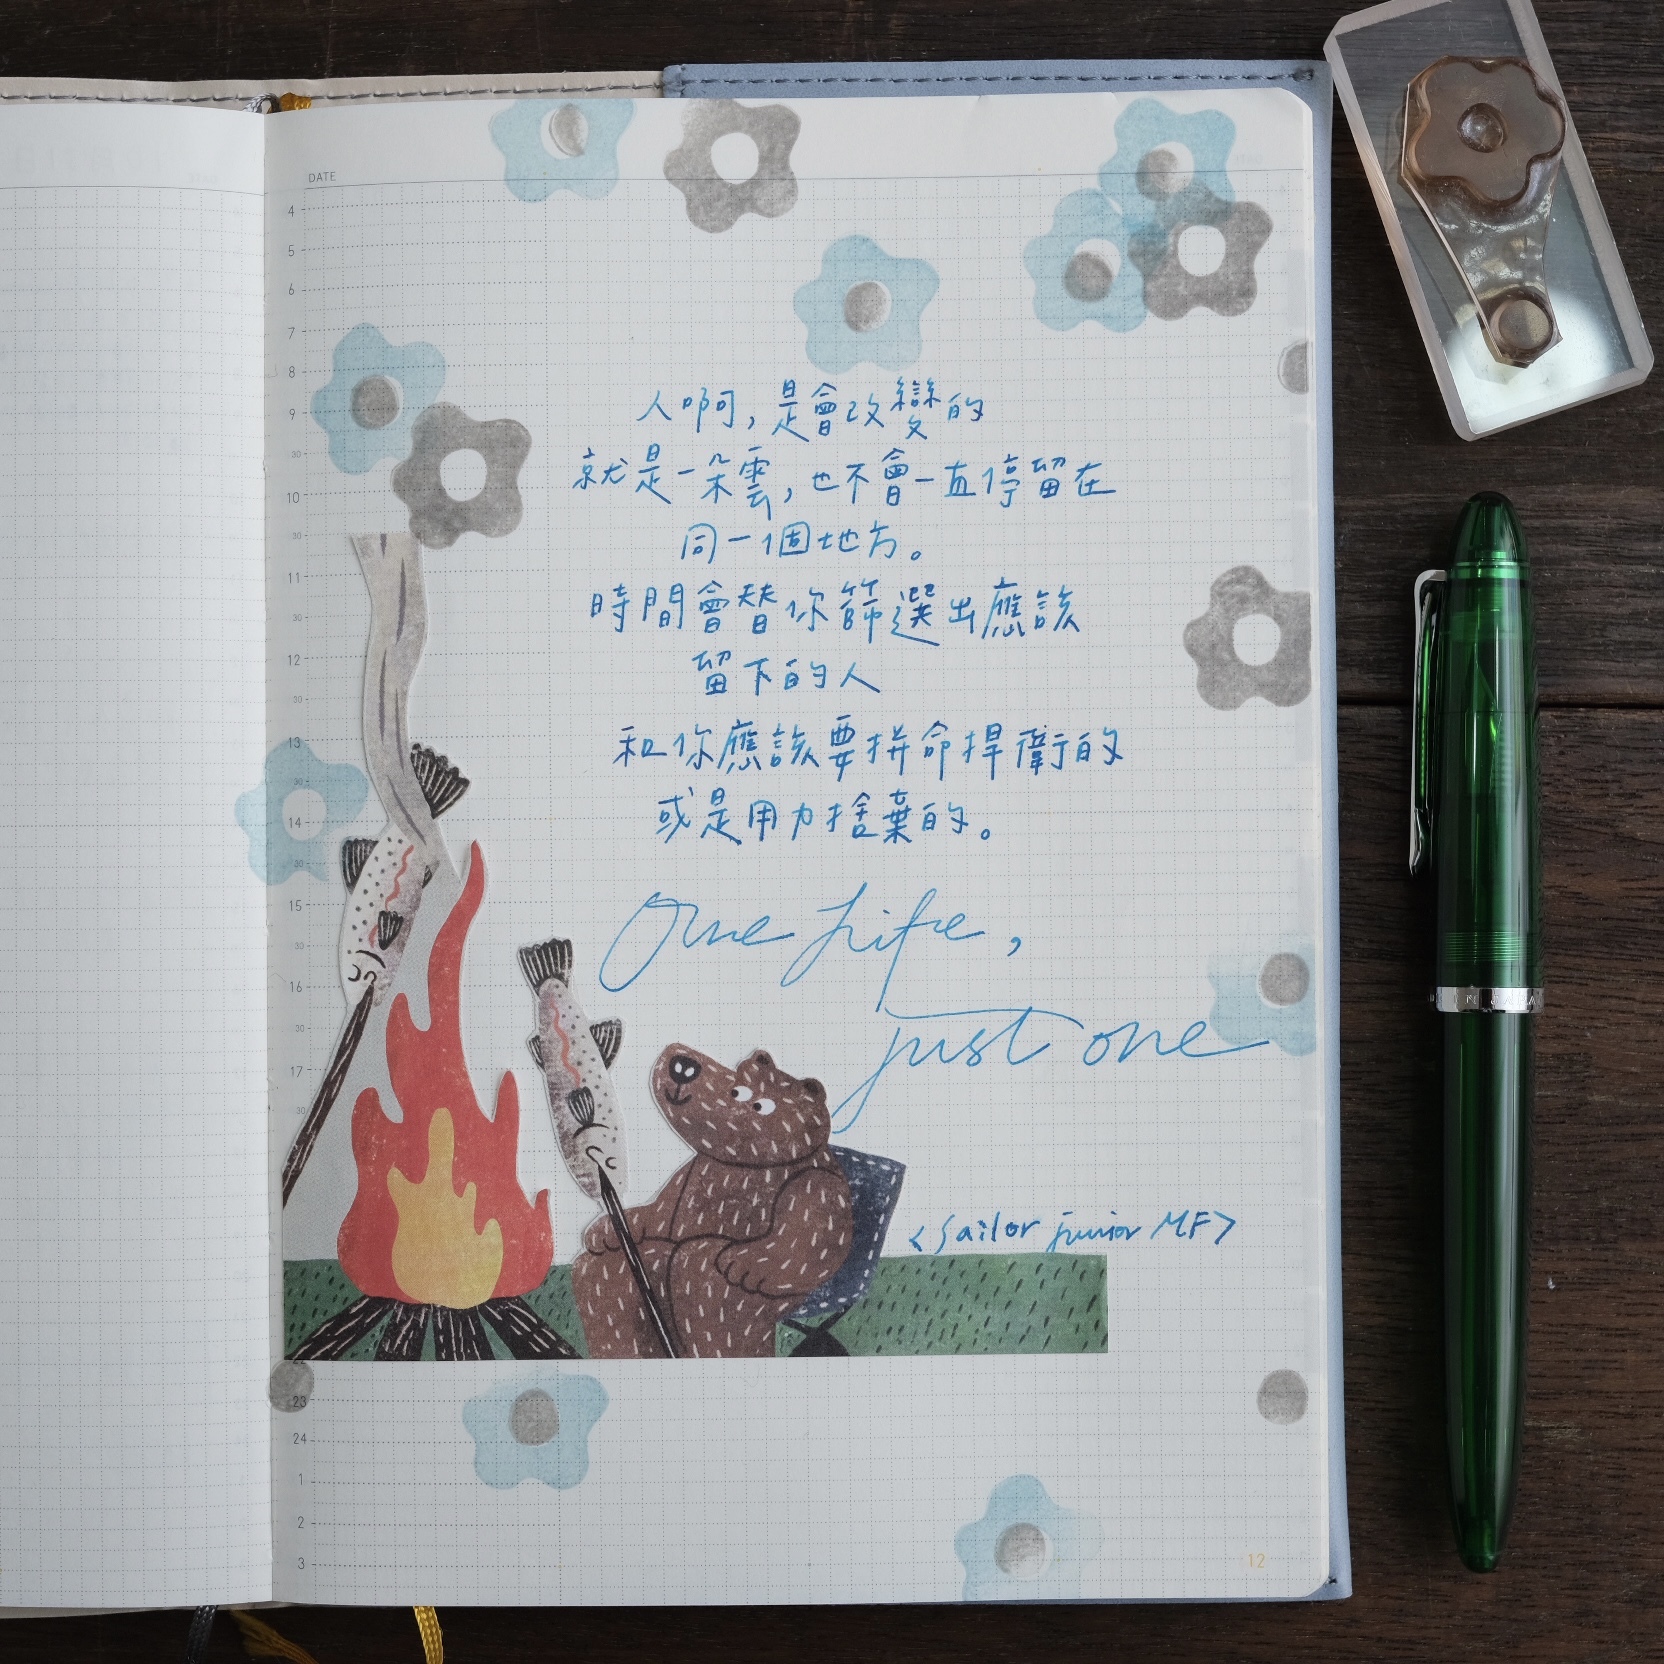 DATE
4
5
6
7
8
9
30
10
30
11
30
12
30
13
30
14
30
15
30
16
30
17
30
人啊,是會改變的
就是一朵雲,也不會一直停留在
同一個地方。
時間會替你篩選出應該
留下的人
和你應該要拼命捍衛的
或是用力捨棄的。
One Life,
just one
<Sailor junior MF>
23
24
1
2
3
12